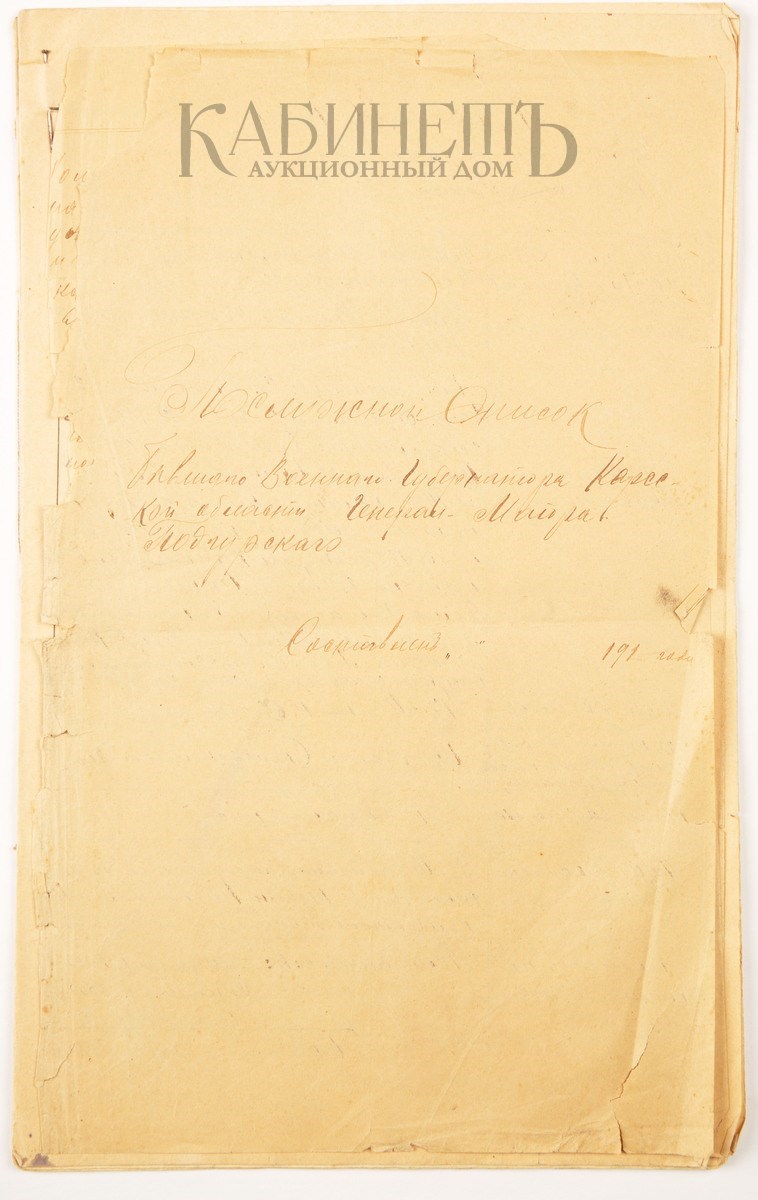 КАБИНЕТЪ
АУКЦИОННЫЙ ДОМ
Послужной Список
Бывшаго Военнаго Губернатора Карс-
кой области Генерал-Маиора
Подгурскаго
Составленъ „ “ 191 года